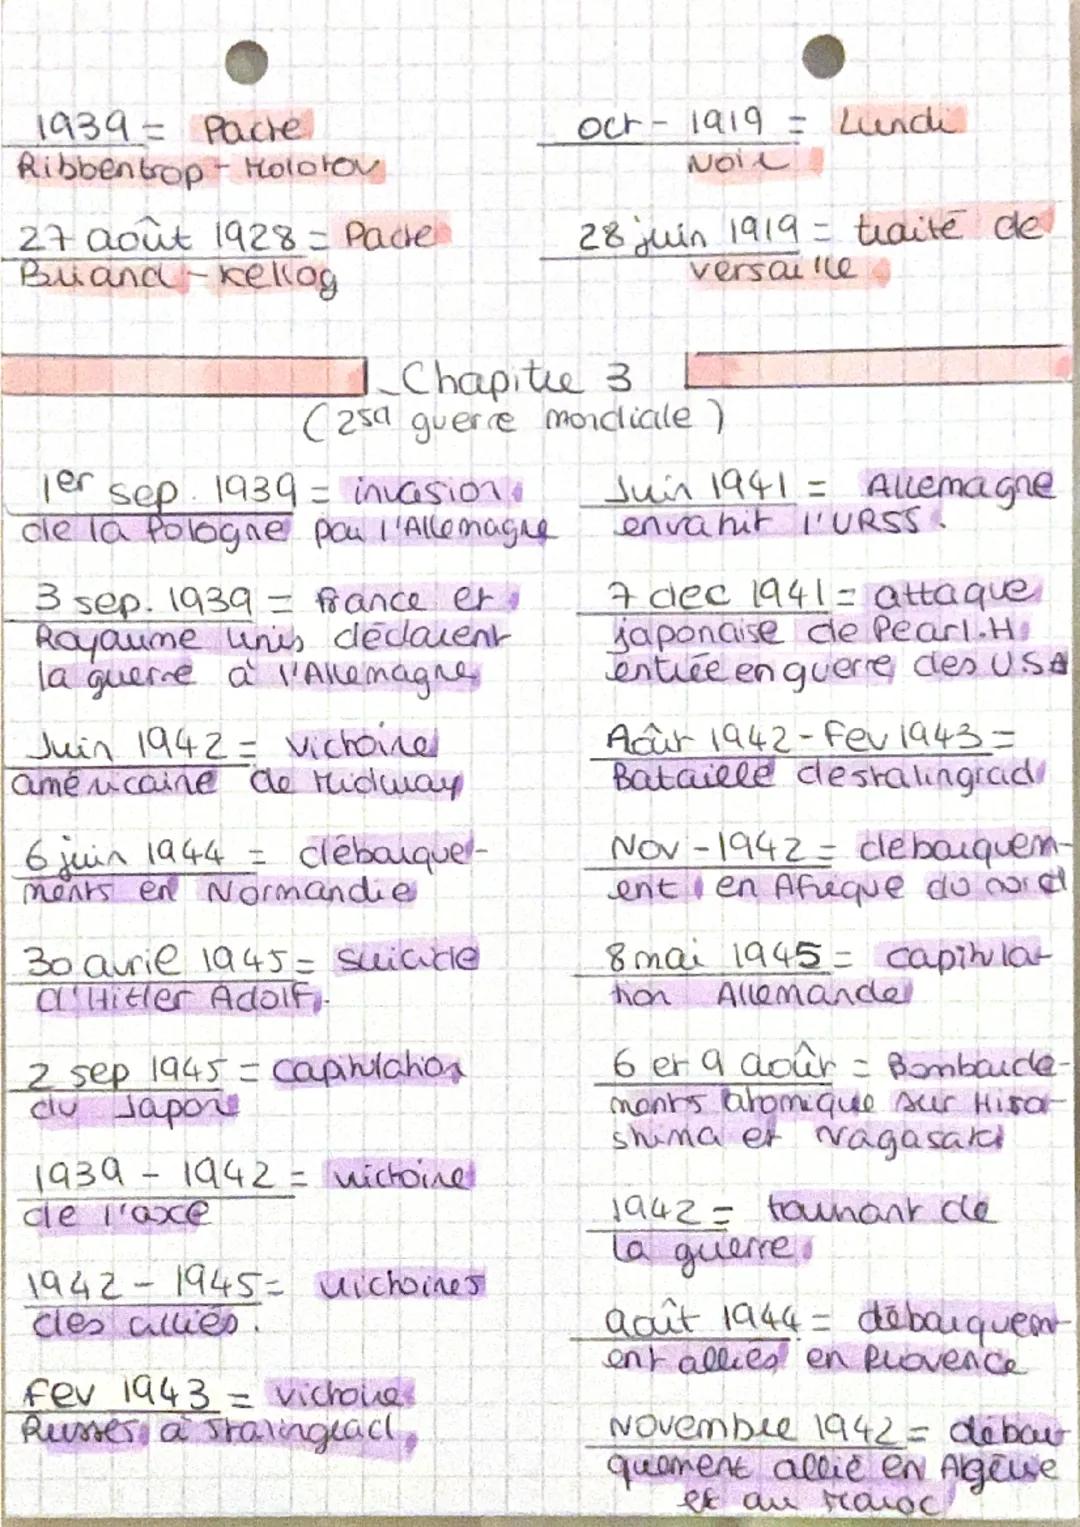 1939 = Pacte
Ribbentrop - Molotov
27 août 1928 = Pacte
Briand - Kellog
oct - 1919 = Lundi
Noir
28 juin 1919 = traité de
versaille
Chapitre 3
(2sd guerre mondiale)
1er sep. 1939 = invasion
de la Pologne par l'Allemagne
3 sep. 1939 = france et
Royaume Unis déclarent
la guerre à l'Allemagne
Juin 1942 = Victoire
américaine de Midway
6 juin 1944 = débarque-
ments en Normandie
30 avril 1945 = suicide
d'Hitler Adolf.
2 sep 1945 = capitulation
du Japon
1939 - 1942 = victoire
de l'axe
1942 - 1945 = victoires
des alliés.
Fev 1943 = victoire
Russes à Stalingrad
Juin 1941 = Allemagne
envahit l'URSS.
7 dec 1941 = attaque
japonaise de Pearl.H
entrée en guerre des U.S.A
Août 1942 - Fev 1943 =
Bataille de stalingrad
Nov - 1942 = debarquem-
ent en Afrique du nord
8 mai 1945 = capitula-
tion Allemande
6 et 9 août = Bombarde-
ments atomique sur Hiro-
shima et Nagasaki
1942 = tournant de
la guerre
août 1944 = débarquem-
ent alliés en Provence
Novembre 1942 = débar-
quement allié en Algérie
et au Maroc